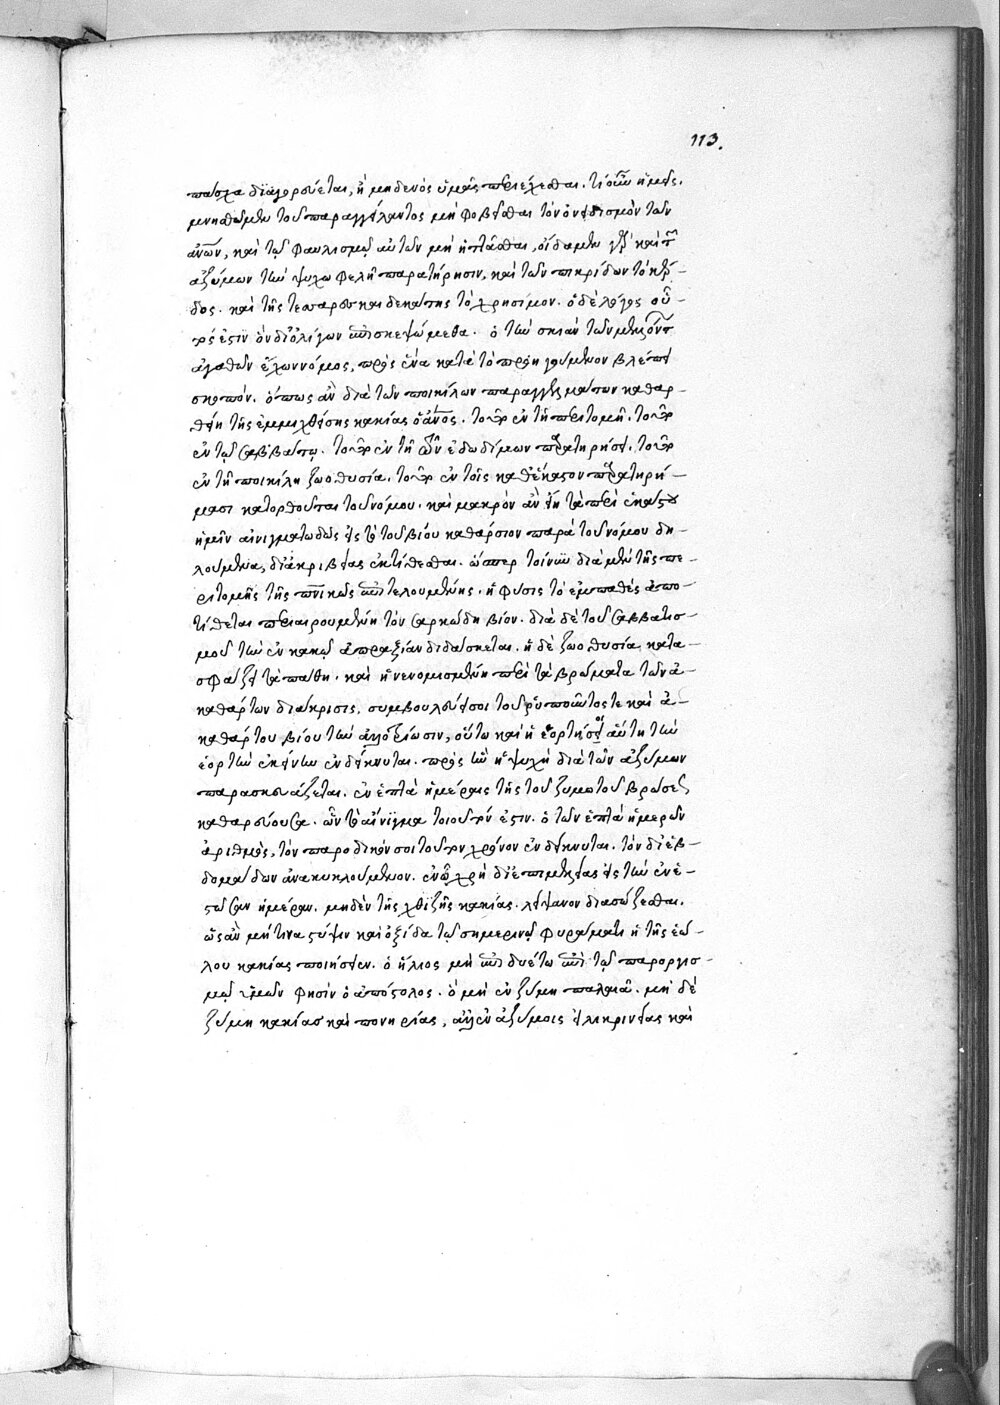 113.
πάσχα διαγορεύεται, ἢ μηδενὸς ὑμᾶς περιέχεσθαι. τί οὖν ἡμεῖς.
μνησθῶμεν τοῦ παραγγείλαντος μὴ φοβεῖσθαι τὸν ὀνειδισμὸν τῶν
ἀνων, καὶ τῷ φαυλισμῷ αὐτῶν μὴ ἡττᾶσθαι, οἴδαμεν γὰρ καὶ τῶν
ἀζύμων τὴν ψυχωφελῆ παρατήρησιν, καὶ τῶν πικρίδων τὸ κέρ-
δος. καὶ τῆς τεσσαρεσκαιδεκάτης τὸ χρήσιμον. ὁ δὲ λόγος οὗ-
τός ἐστιν ὃν δι' ὀλίγων ἐπισκεψώμεθα. ὁ τὴν σκιὰν τῶν μελλόντων
ἀγαθῶν ἔχων νόμος, πρὸς ἕνα κατὰ τὸ προηγούμενον βλέπει
σκοπόν. ὅπως ἂν διὰ τῶν ποικίλων παραγγελμάτων καθαρ-
θείη τῆς ἐμμιχθείσης κακίας ὁ ἄνος. τοῦτο ἐν τῇ περιτομῇ. τοῦτο
ἐν τῷ σαββάτῳ. τοῦτο ἐν τῇ τῶν ἐδωδίμων παρατηρήσει. τοῦτο
ἐν τῇ ποικίλῃ ζωοθυσίᾳ. τοῦτο ἐν τοῖς καθέκαστον παρατηρή-
μασι κατορθοῦται τοῦ νόμου. καὶ μακρὸν ἂν εἴη τὰ περὶ ἑκάστου
ἡμῖν αἰνιγματωδῶς εἰς τὸ τοῦ βίου καθάρσιον παρὰ τοῦ νόμου δη-
λούμενα, δι' ἀκριβείας ἐκτίθεσθαι. ὥσπερ τοίνυν διὰ μὲν τῆς πε-
ριτομῆς τῆς πνικῶς ἐπιτελουμένης, ἡ φύσις τὸ ἐμπαθὲς ἀπο-
τίθεται περιαιρουμένη τὸν σαρκώδη βίον. διὰ δὲ τοῦ σαββατισ-
μοῦ τὴν ἐν κακῷ ἀπραξίαν διδάσκεται. ἡ δὲ ζωοθυσία, κατα-
σφάζει τὰ πάθη. καὶ ἡ νενομισμένη περὶ τὰ βρώματα τῶν ἀ-
καθάρτων διάκρισις, συμβουλεύει σοι τοῦ ῥυπῶντός τε καὶ ἀ-
καθάρτου βίου τὴν ἀλλοτρίωσιν, οὕτω καὶ ἡ ἑορτή σοι αὕτη τὴν
ἑορτὴν ἐκείνην ἐνδείκνυται. πρὸς ἣν ἡ ψυχὴ διὰ τῶν ἀζύμων
παρασκευάζεται. ἐν ἑπτὰ ἡμέραις τῆς τοῦ ζυμωτοῦ βρώσεως
καθαρεύουσα. ὧν τὸ αἴνιγμα τοιοῦτόν ἐστιν. ὁ τῶν ἑπτὰ ἡμερῶν
ἀριθμὸς, τὸν παροδικόν σοι τοῦτον χρόνον ἐνδείκνυται. τὸν δι' ἑβ-
δομάδων ἀνακυκλούμενον. ἐν ᾧ χρὴ δι' ἐπιμελείας εἰς τὴν ἐνε-
στῶσαν ἡμέραν. μηδὲν τῆς χθιζῆς κακίας. λείψανον διασώζεσθαι.
ὡς ἂν μή τινα στύψιν καὶ ὀξίδα τῷ σημερινῷ φυράματι ἡ τῆς ἑώ-
λου κακίας ποιήσειεν. ὁ ἥλιος μὴ ἐπιδυέτω ἐπὶ τῷ παροργισ-
μῷ ὑμῶν φησὶν ὁ ἀπόστολος. ὁ μὴ ἐν ζύμῃ παλαιᾷ. μὴ δὲ
ζύμῃ κακίας καὶ πονηρίας, ἀλλ' ἐν ἀζύμοις εἰλικρινείας καὶ